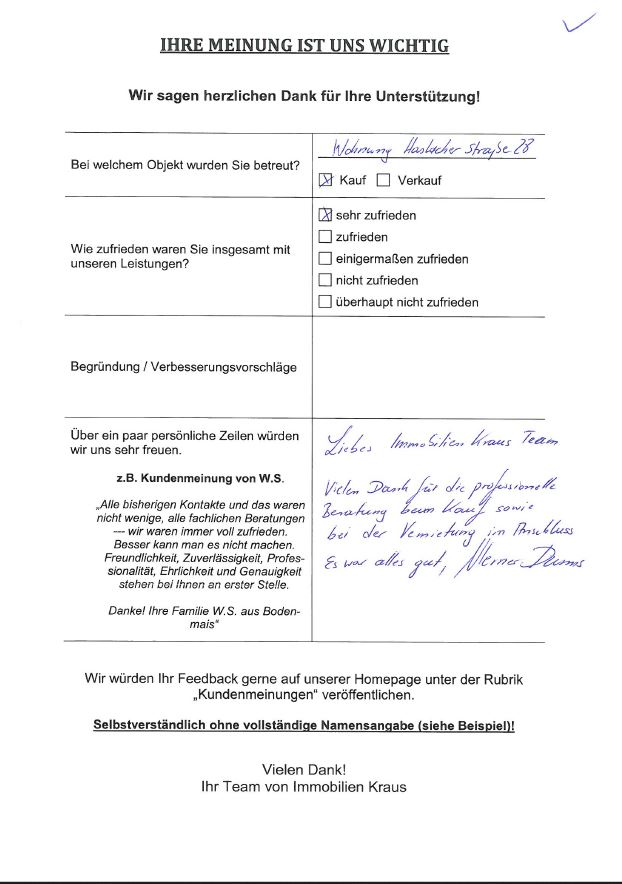 IHRE MEINUNG IST UNS WICHTIG
Wir sagen herzlichen Dank für Ihre Unterstützung!
Bei welchem Objekt wurden Sie betreut?
Wohnung Haslacher Straße 28
Kauf Verkauf
Wie zufrieden waren Sie insgesamt mit
unseren Leistungen?
sehr zufrieden
zufrieden
einigermaßen zufrieden
nicht zufrieden
überhaupt nicht zufrieden
Begründung / Verbesserungsvorschläge
Über ein paar persönliche Zeilen würden
wir uns sehr freuen.
z.B. Kundenmeinung von W.S.
„Alle bisherigen Kontakte und das waren
nicht wenige, alle fachlichen Beratungen
--- wir waren immer voll zufrieden.
Besser kann man es nicht machen.
Freundlichkeit, Zuverlässigkeit, Profes-
sionalität, Ehrlichkeit und Genauigkeit
stehen bei Ihnen an erster Stelle.
Danke! Ihre Familie W.S. aus Boden-
mais“
Liebes Immobilien Kraus Team
Vielen Dank für die professionelle
Beratung beim Kauf sowie
bei der Vermietung im Anschluss
Es war alles gut,
Wir würden Ihr Feedback gerne auf unserer Homepage unter der Rubrik
„Kundenmeinungen“ veröffentlichen.
Selbstverständlich ohne vollständige Namensangabe (siehe Beispiel)!
Vielen Dank!
Ihr Team von Immobilien Kraus